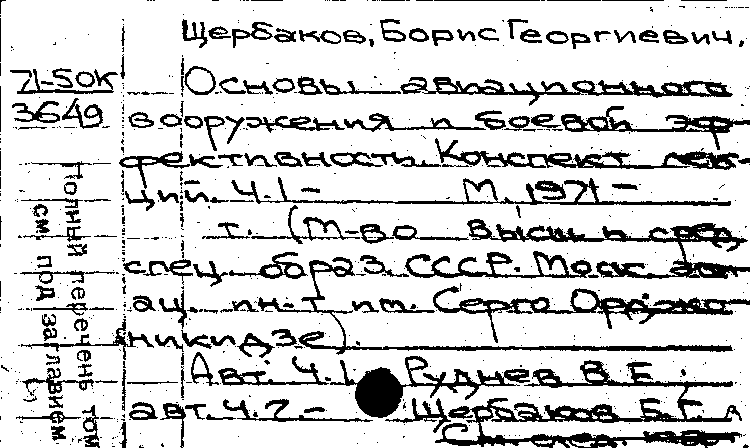 Щербаков, Борис Георгиевич,
71-50К
3649
Основы авиационного
вооружения и боевой эф-
фективность. Конспект лек-
ций. Ч.1 - М. 1971 -
т. (М-во высш. и сред.
спец. образ. СССР. Моск. ави-
ац. ин-т им. Серго Орджо-
никидзе).
Авт. Ч.1. Руднев В. Е.;
авт. Ч.2. - Щербаков Б.Г.
См. след.
Полный перечень том
см. под заглавием